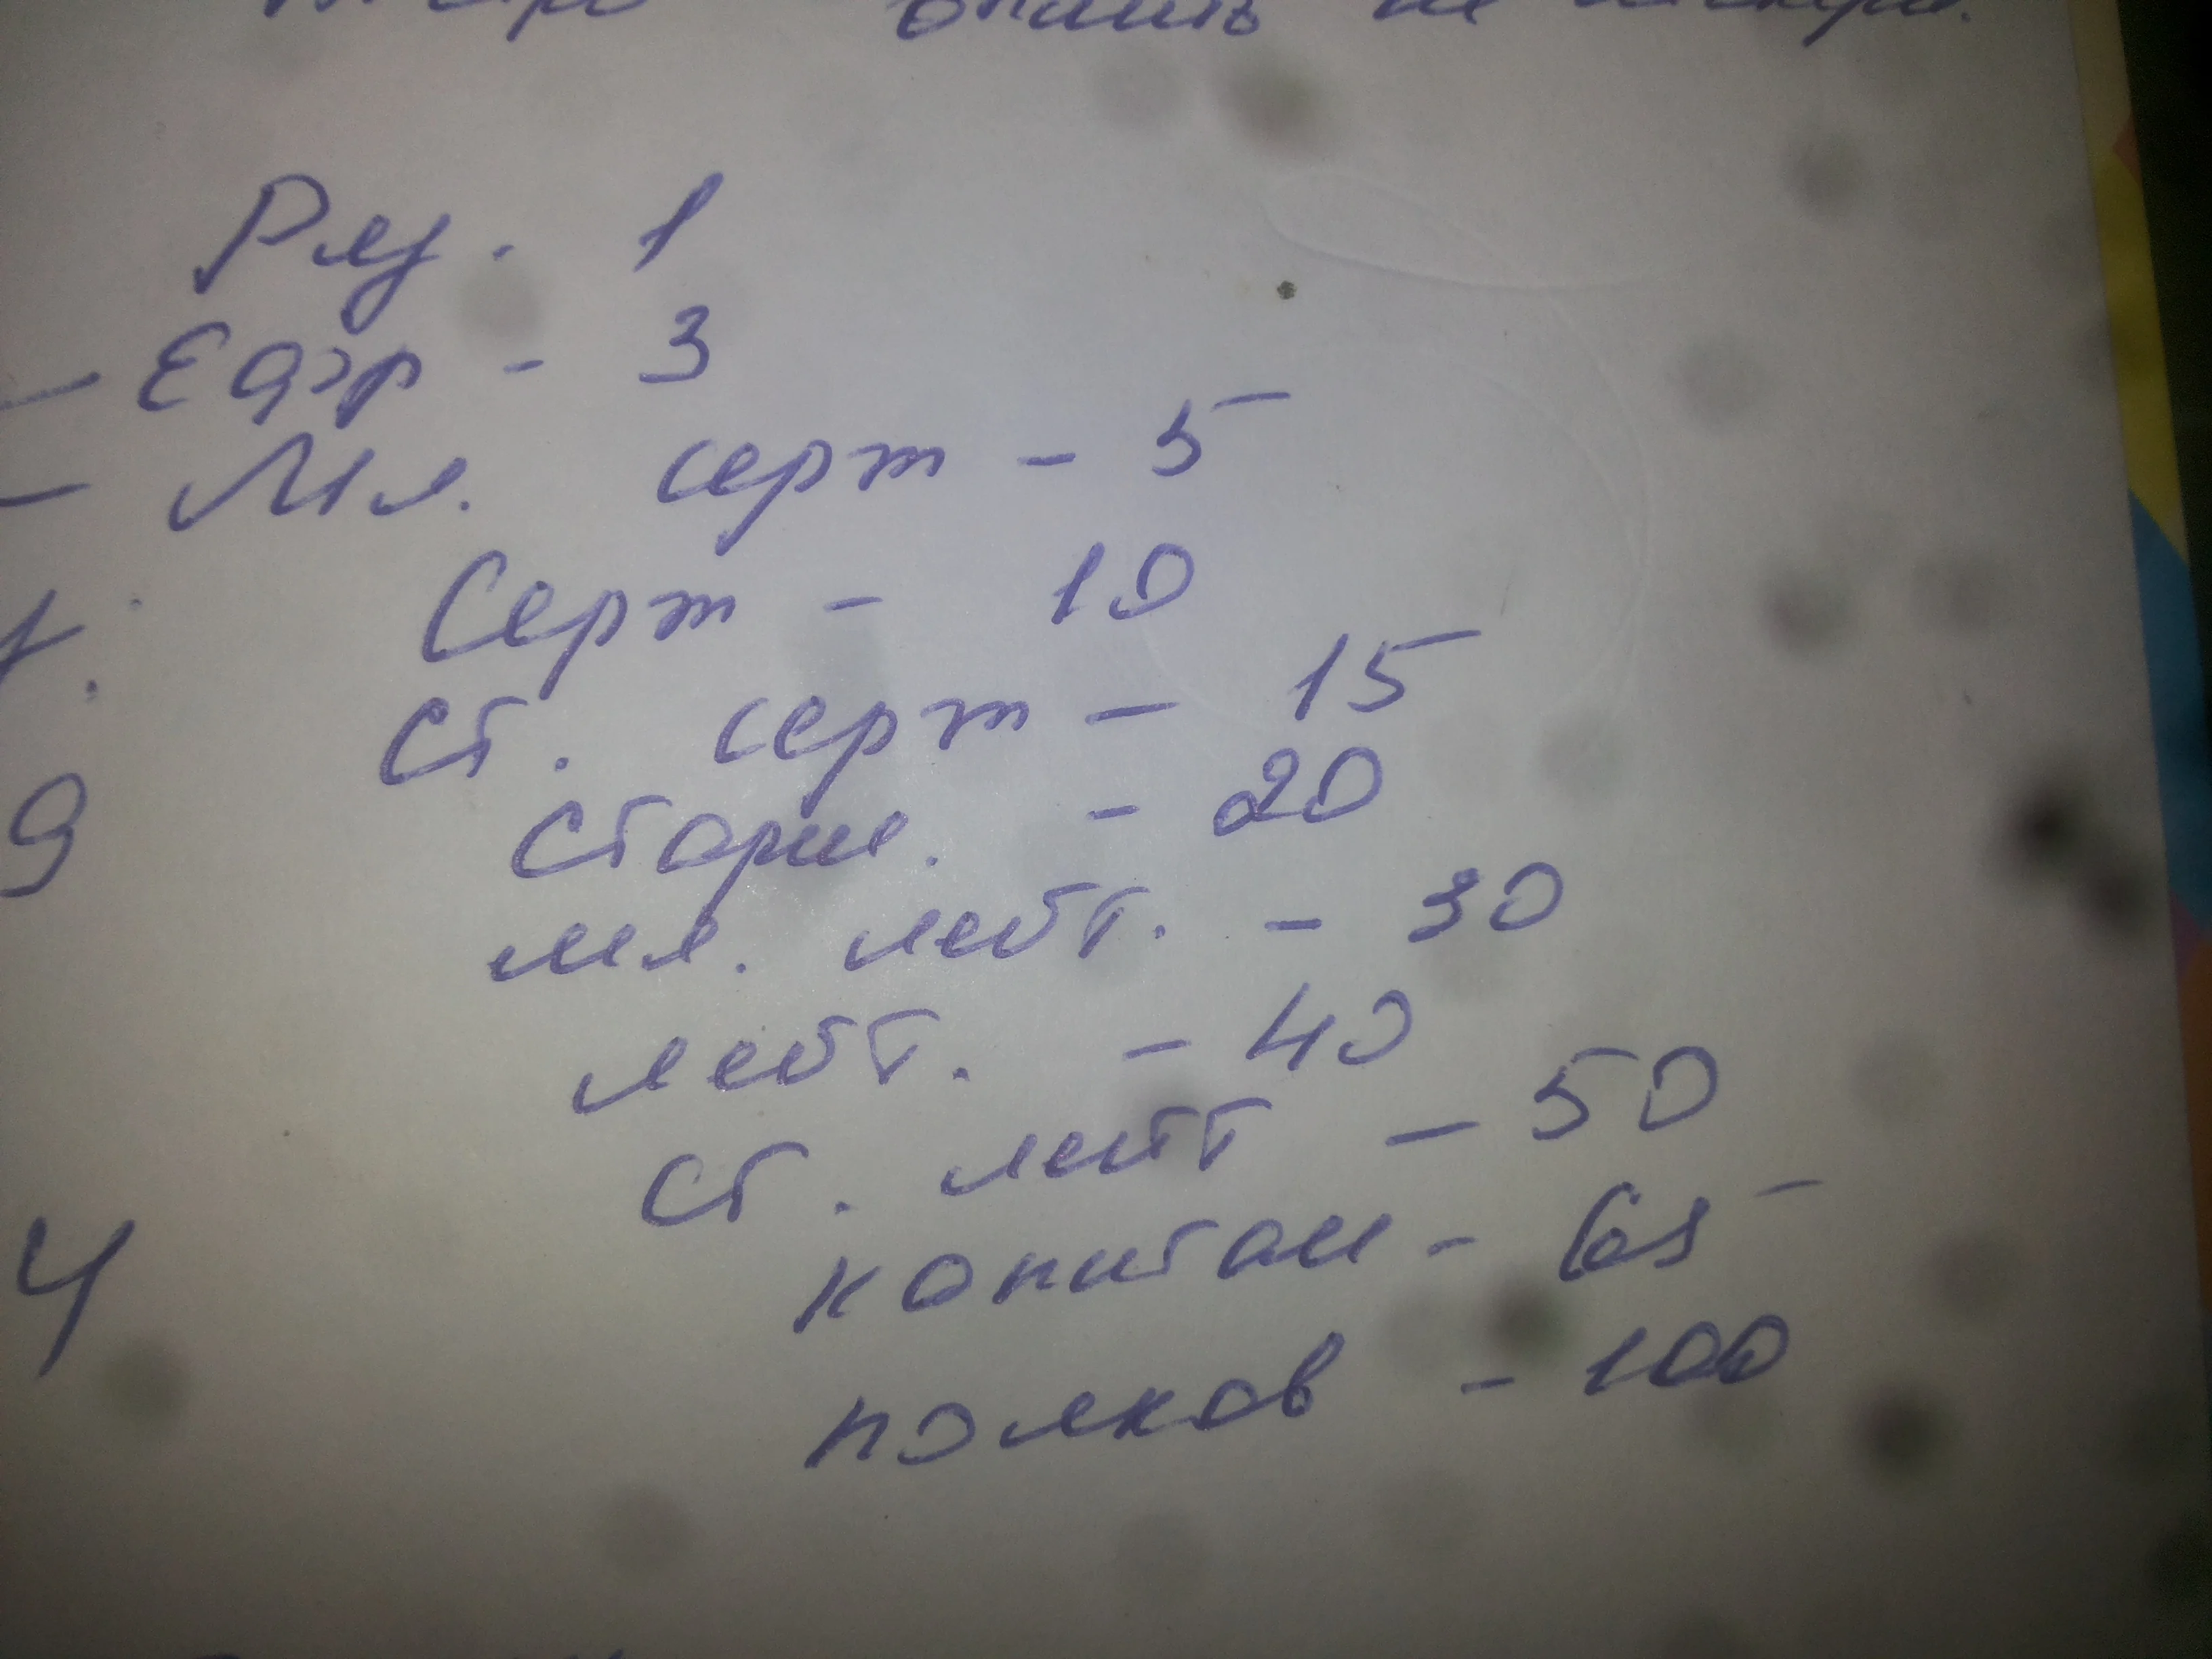 Ряд. 1
Ефр - 3
Мл. серт - 5
Серт - 10
Ст. серт - 15
Старш. - 20
мл. лейт. - 30
лейт. - 40
ст. лейт - 50
капитан - 65
полков - 100
9
4